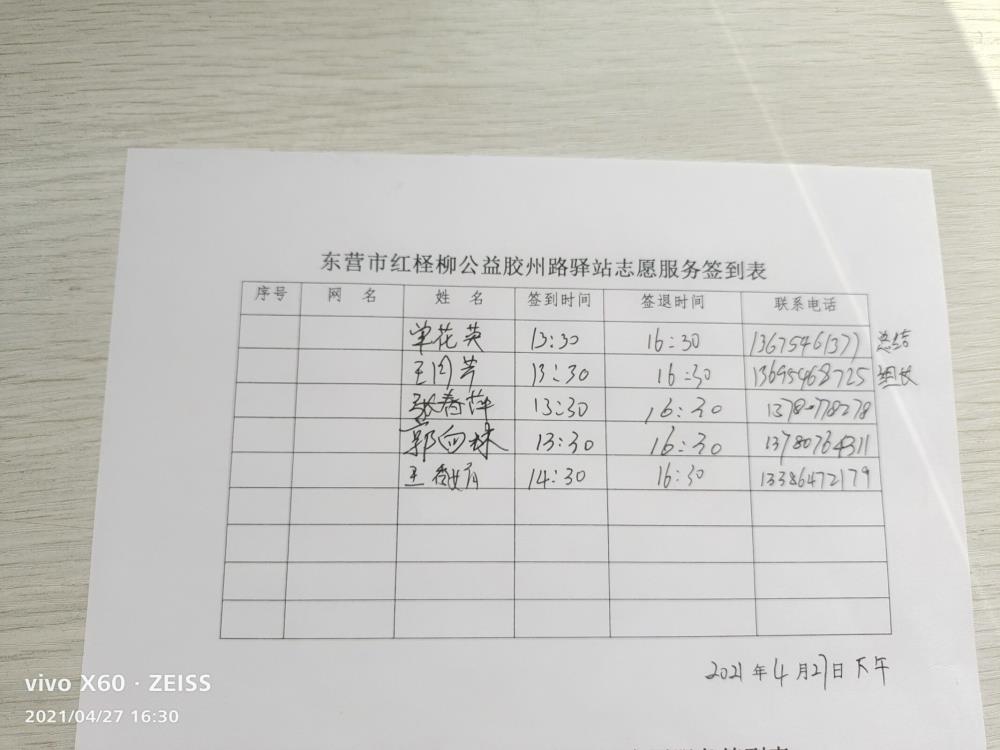 东营市红柽柳公益胶州路驿站志愿服务签到表
序号 网 名 姓 名 签到时间 签退时间 联系电话
单花英 13:30 16:30 13675461377 总结
王 13:30 16:30 13695468725 组长
张春萍 13:30 16:30
郭向林 13:30 16:30 13780764311
王 14:30 16:30 13386472179
2021年4月27日下午
vivo X60 · ZEISS
2021/04/27 16:30